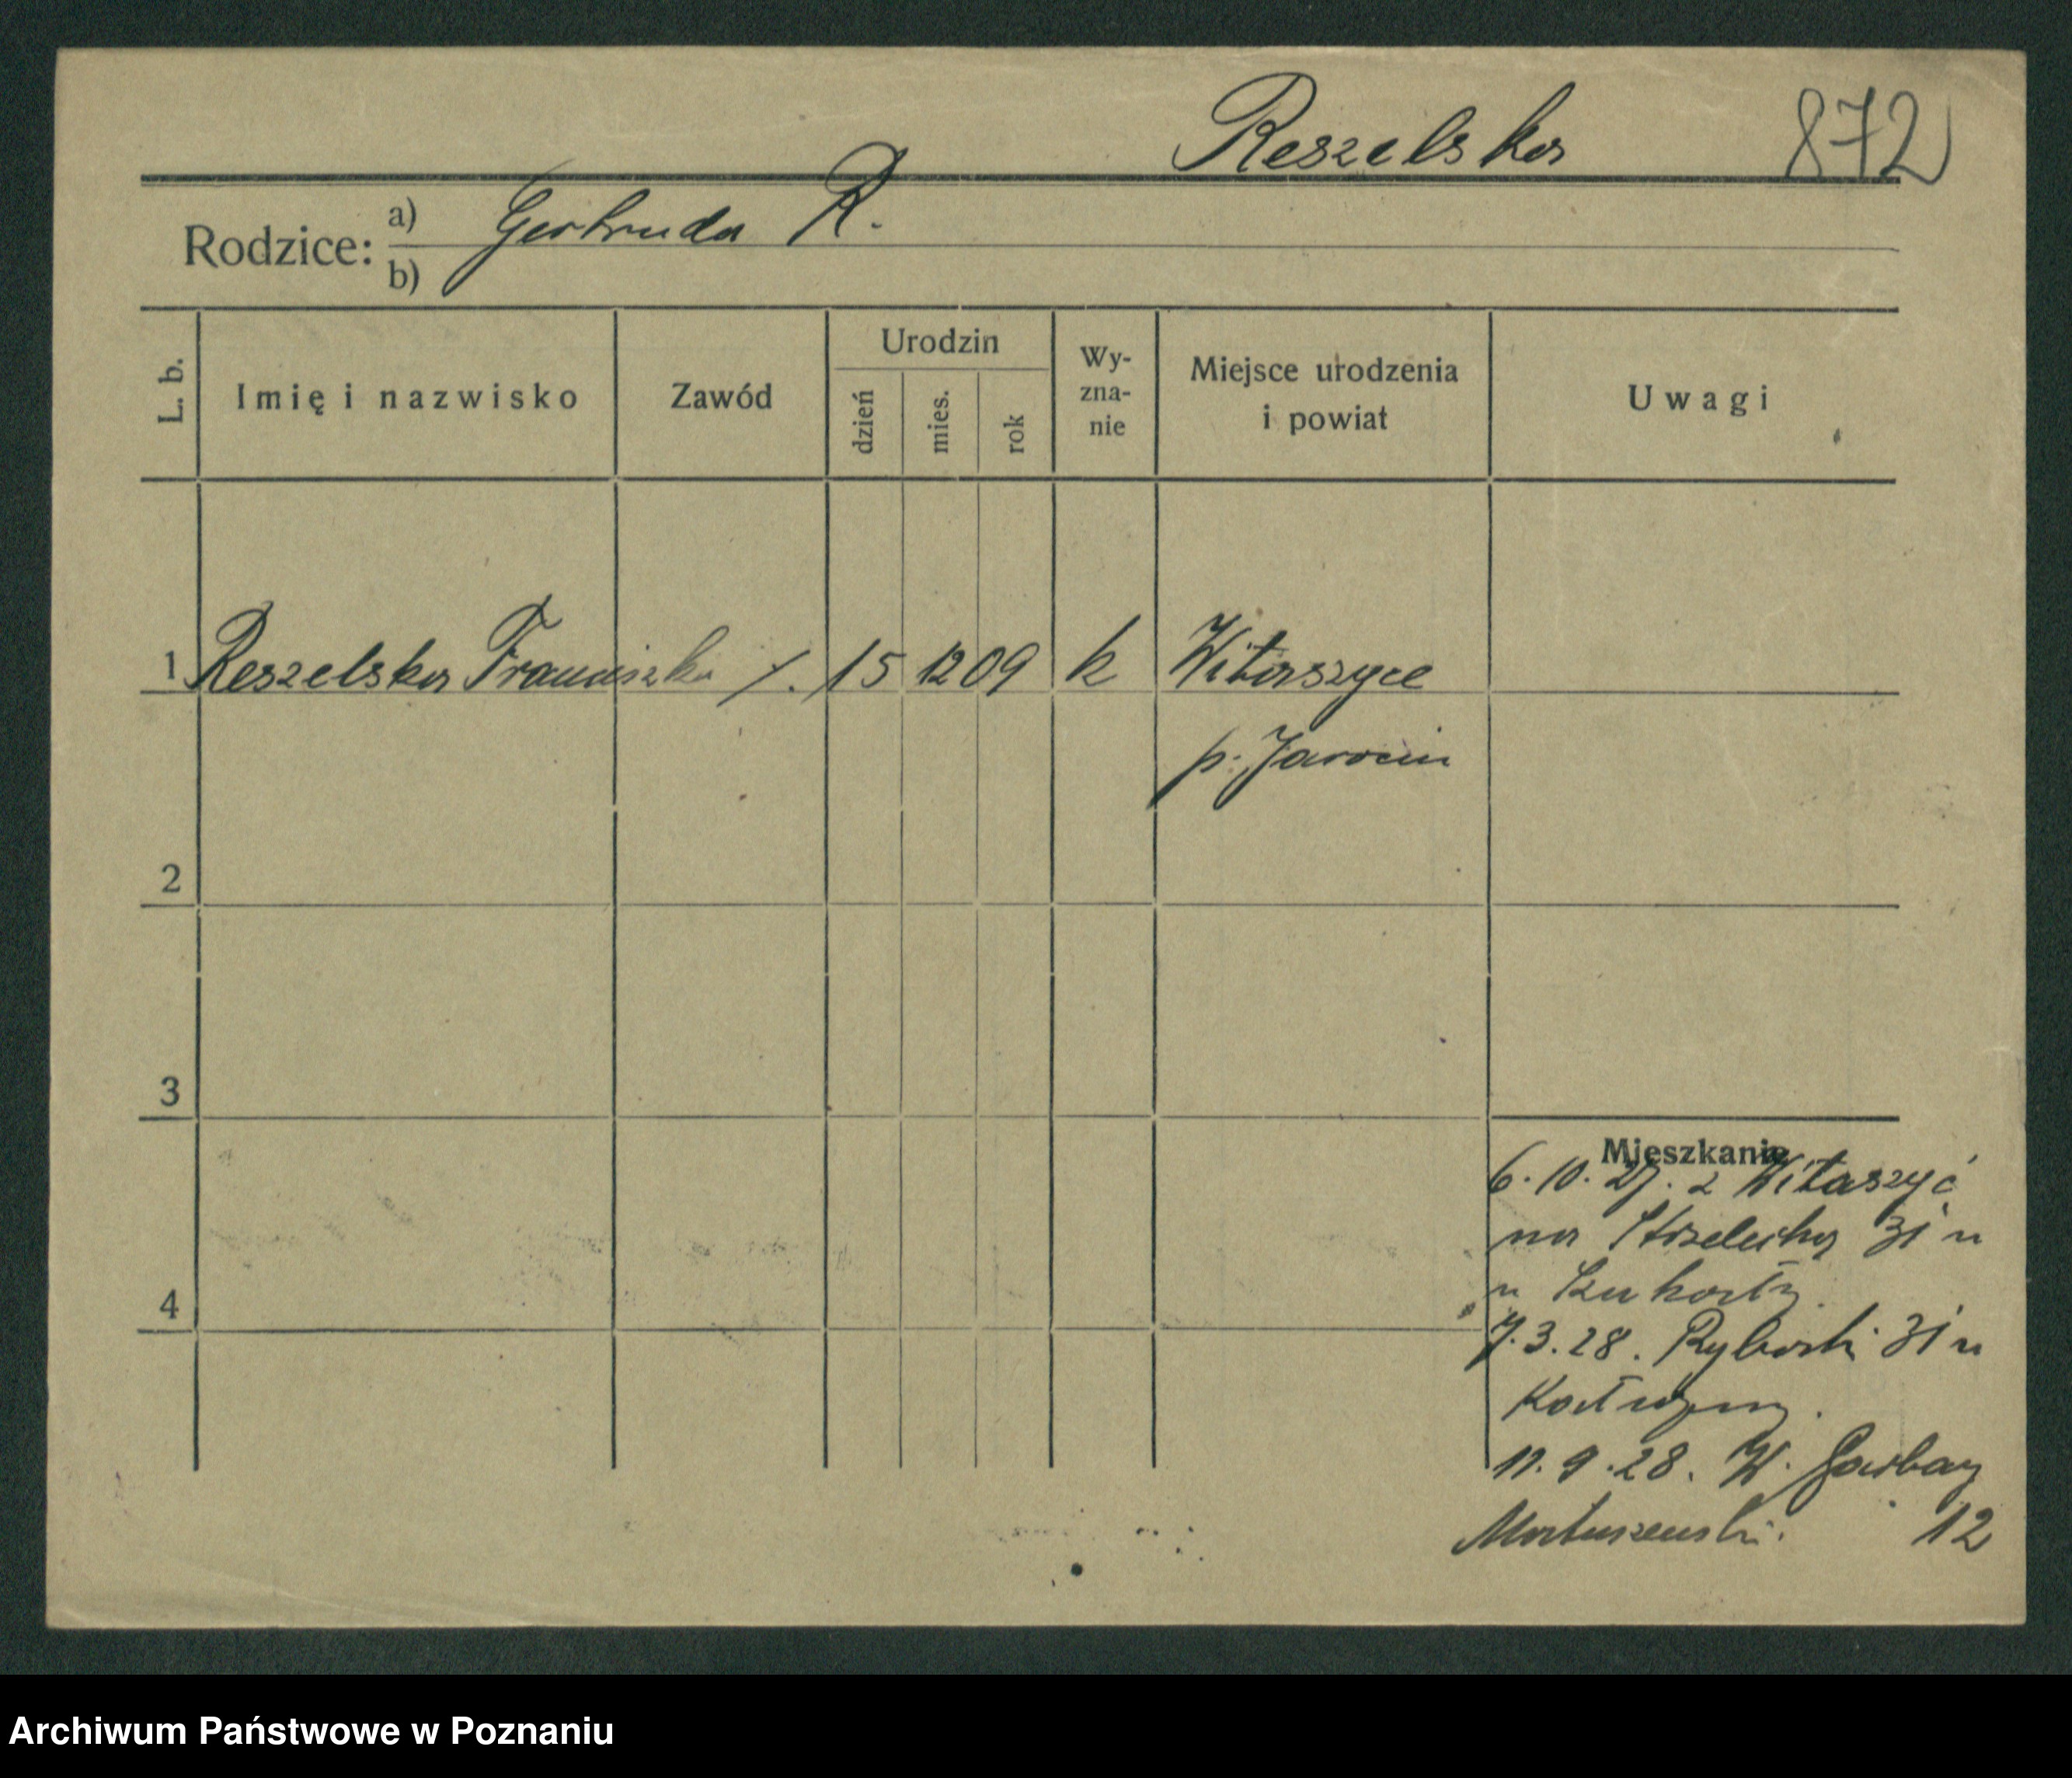 Reszelska 872
Rodzice: a) Gertruda R.
b)
L. b. Imię i nazwisko Zawód Urodzin dzień mies. rok Wy-zna-nie Miejsce urodzenia i powiat Uwagi
1 Reszelska Franciszka /. 15 12 09 k Witaszyce
p. Jarocin
2
3
Mieszkanie
6. 10. 27. z Witaszyć
na Strzelecką 31 u
4
7. 3. 28. Rybaki 31 u
11. 9. 28. W. Garbary
Matuszewski. 12
Archiwum Państwowe w Poznaniu